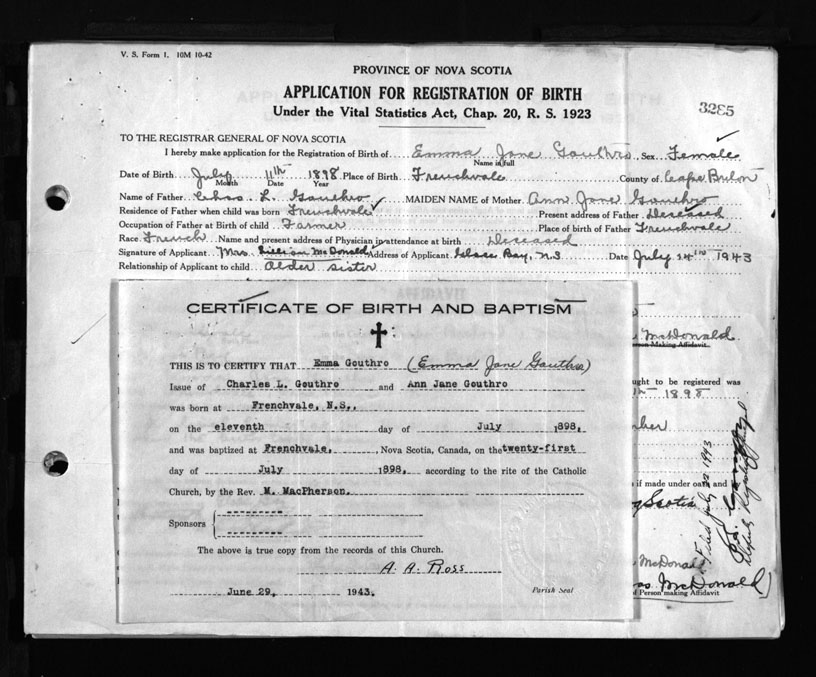 V. S. Form 1. 10M 10-42
PROVINCE OF NOVA SCOTIA
APPLICATION FOR REGISTRATION OF BIRTH
3285
Under the Vital Statistics Act, Chap. 20, R. S. 1923
TO THE REGISTRAR GENERAL OF NOVA SCOTIA
I hereby make application for the Registration of Birth of Emma Jane Gouthro Sex Female
Name in full
Date of Birth July 11th 1898 Place of Birth Frenchvale County of Cape Breton
Month Date Year
Name of Father Chas. L. Gouthro MAIDEN NAME of Mother Ann Jane Gouthro
Residence of Father when child was born Frenchvale Present address of Father Deceased
Occupation of Father at Birth of child Farmer Place of birth of Father Frenchvale
Race French Name and present address of Physician in attendance at birth Deceased
Signature of Applicant Mrs. Lillian McDonald Address of Applicant Glace Bay, N.S Date July 14th 1943
Relationship of Applicant to child Older sister
CERTIFICATE OF BIRTH AND BAPTISM
THIS IS TO CERTIFY THAT Emma Gouthro (Emma Jane Gouthro)
Issue of Charles L. Gouthro and Ann Jane Gouthro
was born at Frenchvale, N.S.,
on the eleventh day of July 1898,
and was baptized at Frenchvale, , Nova Scotia, Canada, on the twenty-first
day of July 1898, according to the rite of the Catholic
Church, by the Rev. M. MacPherson.
Sponsors
The above is true copy from the records of this Church.
A. A. Ross
June 29, 1943. Parish Seal
McDonald
son Making Affidavit
ught to be registered was
th 1898
if made under oath and
Scotia
McDonald
McDonald)
of Person making Affidavit
Filed July 22 1943
Deputy Registrar